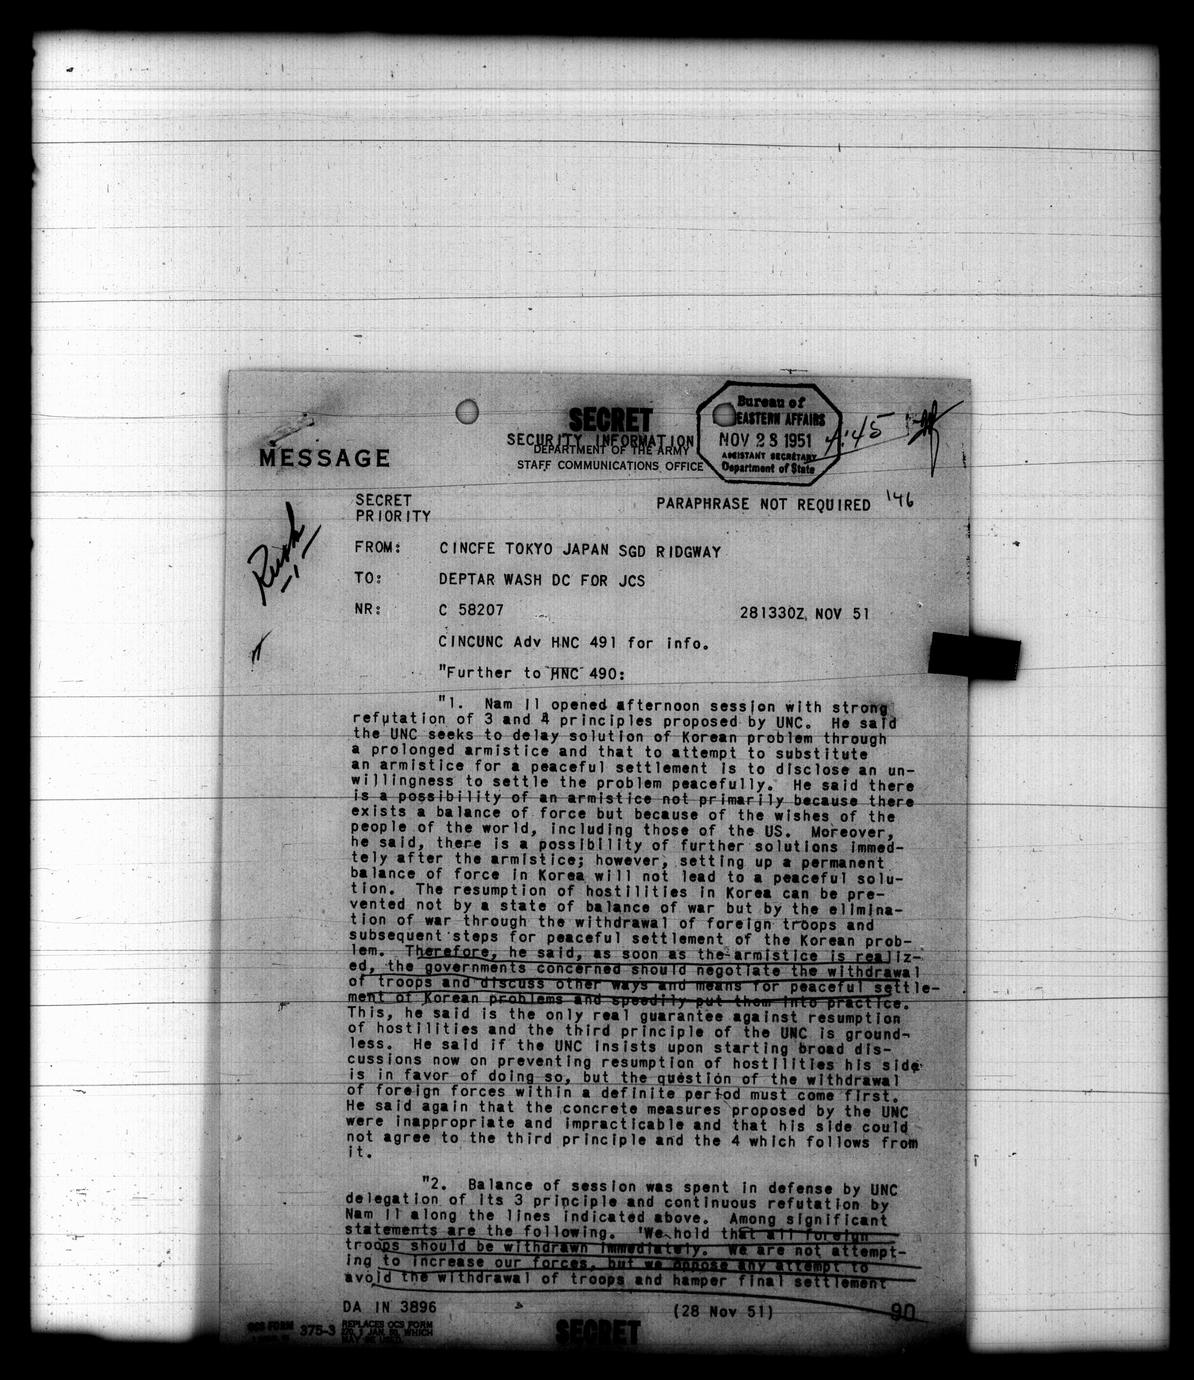 Bureau of
SECRET
EASTERN AFFAIRS
SECURITY INFORMATION
NOV 28 1951
DEPARTMENT OF THE ARMY
ASSISTANT SECRETARY
MESSAGE
STAFF COMMUNICATIONS OFFICE
Department of State
SECRET
PARAPHRASE NOT REQUIRED 146
PRIORITY
Rush
FROM: CINCFE TOKYO JAPAN SGD RIDGWAY
TO: DEPTAR WASH DC FOR JCS
NR: C 58207 281330Z NOV 51
CINCUNC Adv HNC 491 for info.
"Further to HNC 490:
"1. Nam Il opened afternoon session with strong
refutation of 3 and 4 principles proposed by UNC. He said
the UNC seeks to delay solution of Korean problem through
a prolonged armistice and that to attempt to substitute
an armistice for a peaceful settlement is to disclose an un-
willingness to settle the problem peacefully. He said there
is a possibility of an armistice not primarily because there
exists a balance of force but because of the wishes of the
people of the world, including those of the US. Moreover,
he said, there is a possibility of further solutions immed-
tely after the armistice; however, setting up a permanent
balance of force in Korea will not lead to a peaceful solu-
tion. The resumption of hostilities in Korea can be pre-
vented not by a state of balance of war but by the elimina-
tion of war through the withdrawal of foreign troops and
subsequent steps for peaceful settlement of the Korean prob-
lem. Therefore, he said, as soon as the armistice is realiz-
ed, the governments concerned should negotiate the withdrawal
of troops and discuss other ways and means for peaceful settle-
ment of Korean problems and speedily put them into practice.
This, he said is the only real guarantee against resumption
of hostilities and the third principle of the UNC is ground-
less. He said if the UNC insists upon starting broad dis-
cussions now on preventing resumption of hostilities his side
is in favor of doing so, but the question of the withdrawal
of foreign forces within a definite period must come first.
He said again that the concrete measures proposed by the UNC
were inappropriate and impracticable and that his side could
not agree to the third principle and the 4 which follows from
it.
"2. Balance of session was spent in defense by UNC
delegation of its 3 principle and continuous refutation by
Nam Il along the lines indicated above. Among significant
statements are the following. 'We hold that all foreign
troops should be withdrawn immediately. We are not attempt-
ing to increase our forces, but we oppose any attempt to
avoid the withdrawal of troops and hamper final settlement
DA IN 3896 (28 Nov 51) 90
OCS FORM 375-3 REPLACES OCS FORM
WHICH
MAY BE USED.
SECRET